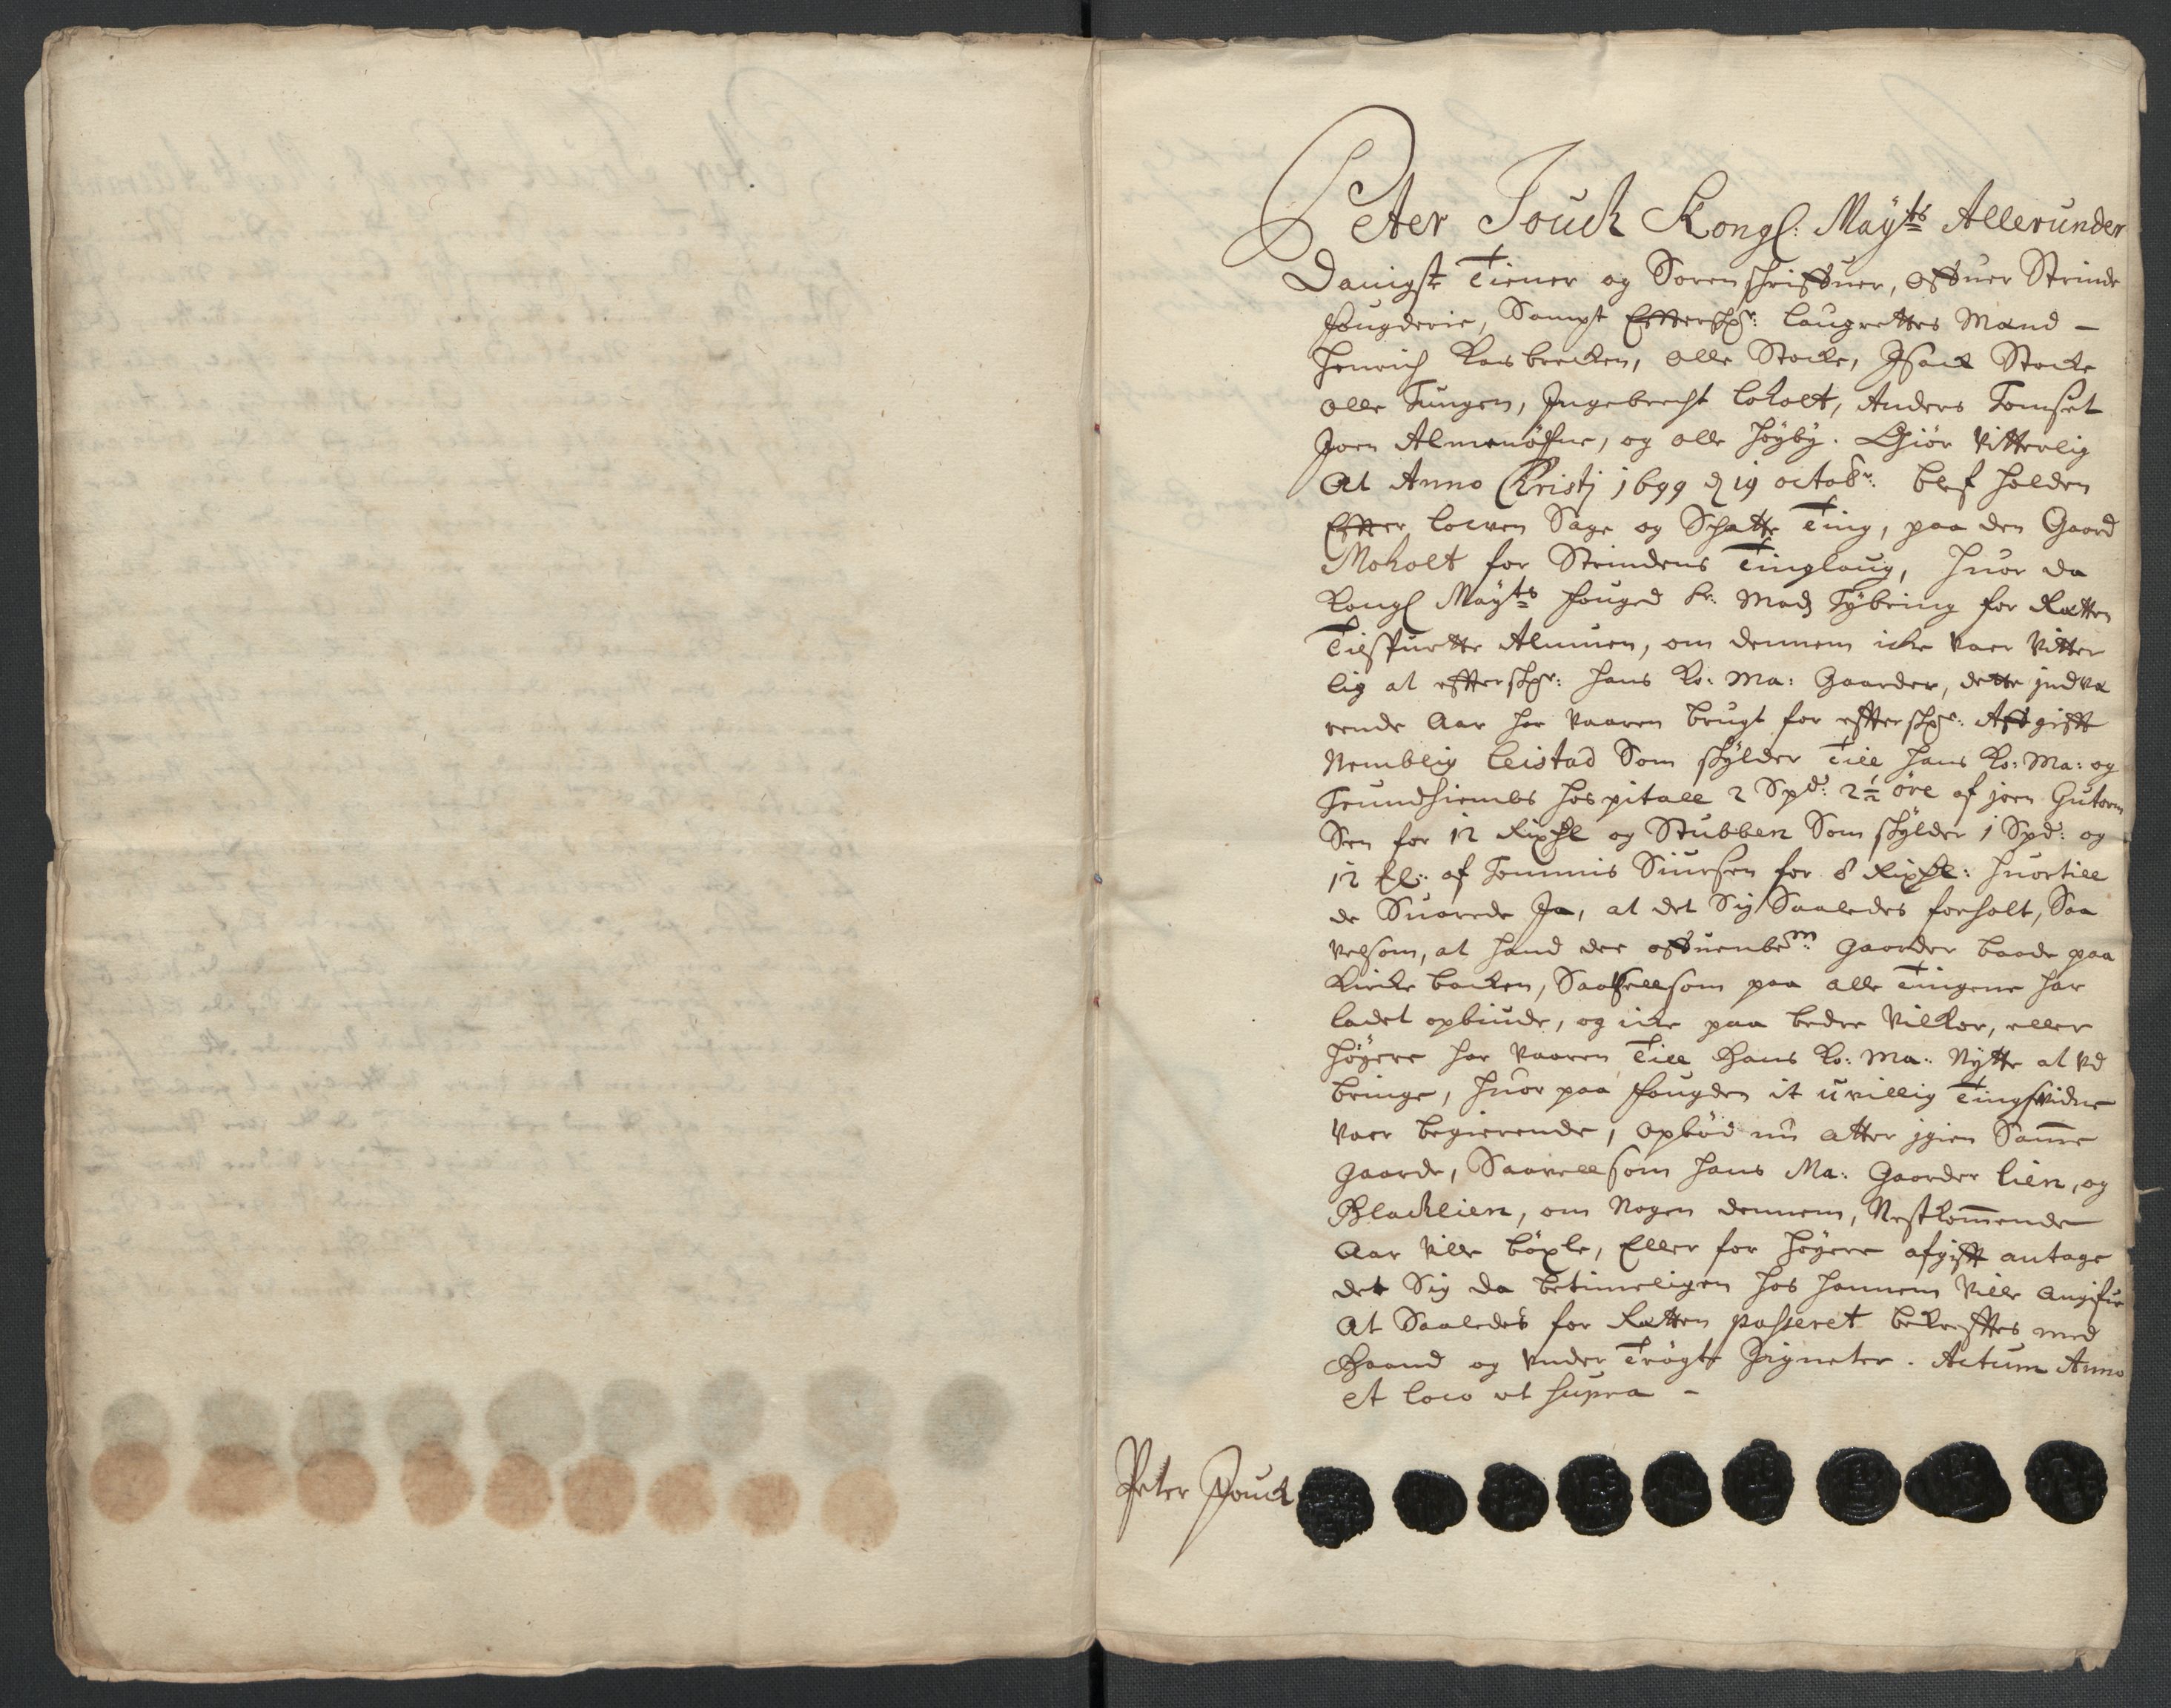 Peter Jouch Kongl: Mayts Allerunder
Danigst Tiener og Sorenschriffuer, offuer Strinde
fougderie, Sampt Effterschr: laugrettes Mænd –
Henrich Ransbecken, Olle Stocke, Isack Stocke
Olle Tungen, Ingebrecht loholt, Anders Tomset
Joen Almenöffne, og Olle Höyby. Giör Vitterlig
At Anno Christj 1699 d 19 octobr: blef holden
Effter lowen Sage og Schatte Ting, paa den Gaard
Moholt for Strindens Tinglaug, huor da
Kongl Mayts fouged Sr: Mads Tybring for Rætten
Tilspurtte Almuen, om dennem icke vaer Vitter
lig at effterschr: hans Ko: Ma: Gaarder, dette indvæ
rende Aar har vaaren brugt for effterschr: Affgifft
Nemblig leistad Som schylder Till hans Ko: Ma: og
Trundhiembs Hospitall 2 Spd: 2½ öre af joen Gutorm
Sen for 12 Rixdl og Stubben Som schylder 1 Spd: og
12 Ml: af Tommis Siursen for 8 Rixdl: huortill
de Suarede Ja, at det Sig Saaledes forholt, Saa
velsom, at hand der offuenbem: Gaarder baade paa
Kircke backen, Saavellsom paa alle Tingene har
ladet opbiude, og icke paa bedre Vilkor, eller
höyere har vaaren Till Hans Ko: Ma: Nytte at vd
bringe, huor paa fougden it uvillig Tingsvidne
vaer begierende, opböd nu atter igien Samme
Gaarde, Saavellsom hans Ma: Gaarder lien, og
Blacklien, om Nogen dennem, Nestkommende
Aar ville böxle, Eller for höyere afgifft antage
det Sig da betimeligen hos hannem ville angifue
At Saaledes for Rætten passeret bekrefftes med
Haand og under Trögte Signeter. Actum Anno
et loco ut supra –
Peter Jouch